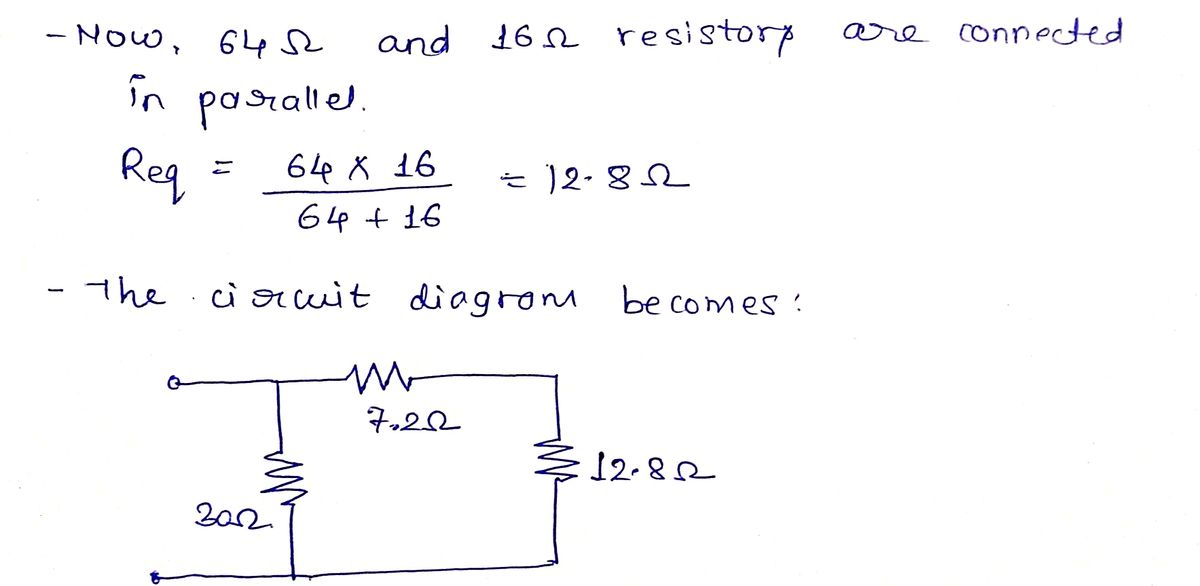 - Now, 64Ω and 16Ω resistors are connected
in parallel.
Req = 64 × 16 / 64 + 16 = 12.8Ω
- The circuit diagram becomes:
7.2Ω
12.8Ω